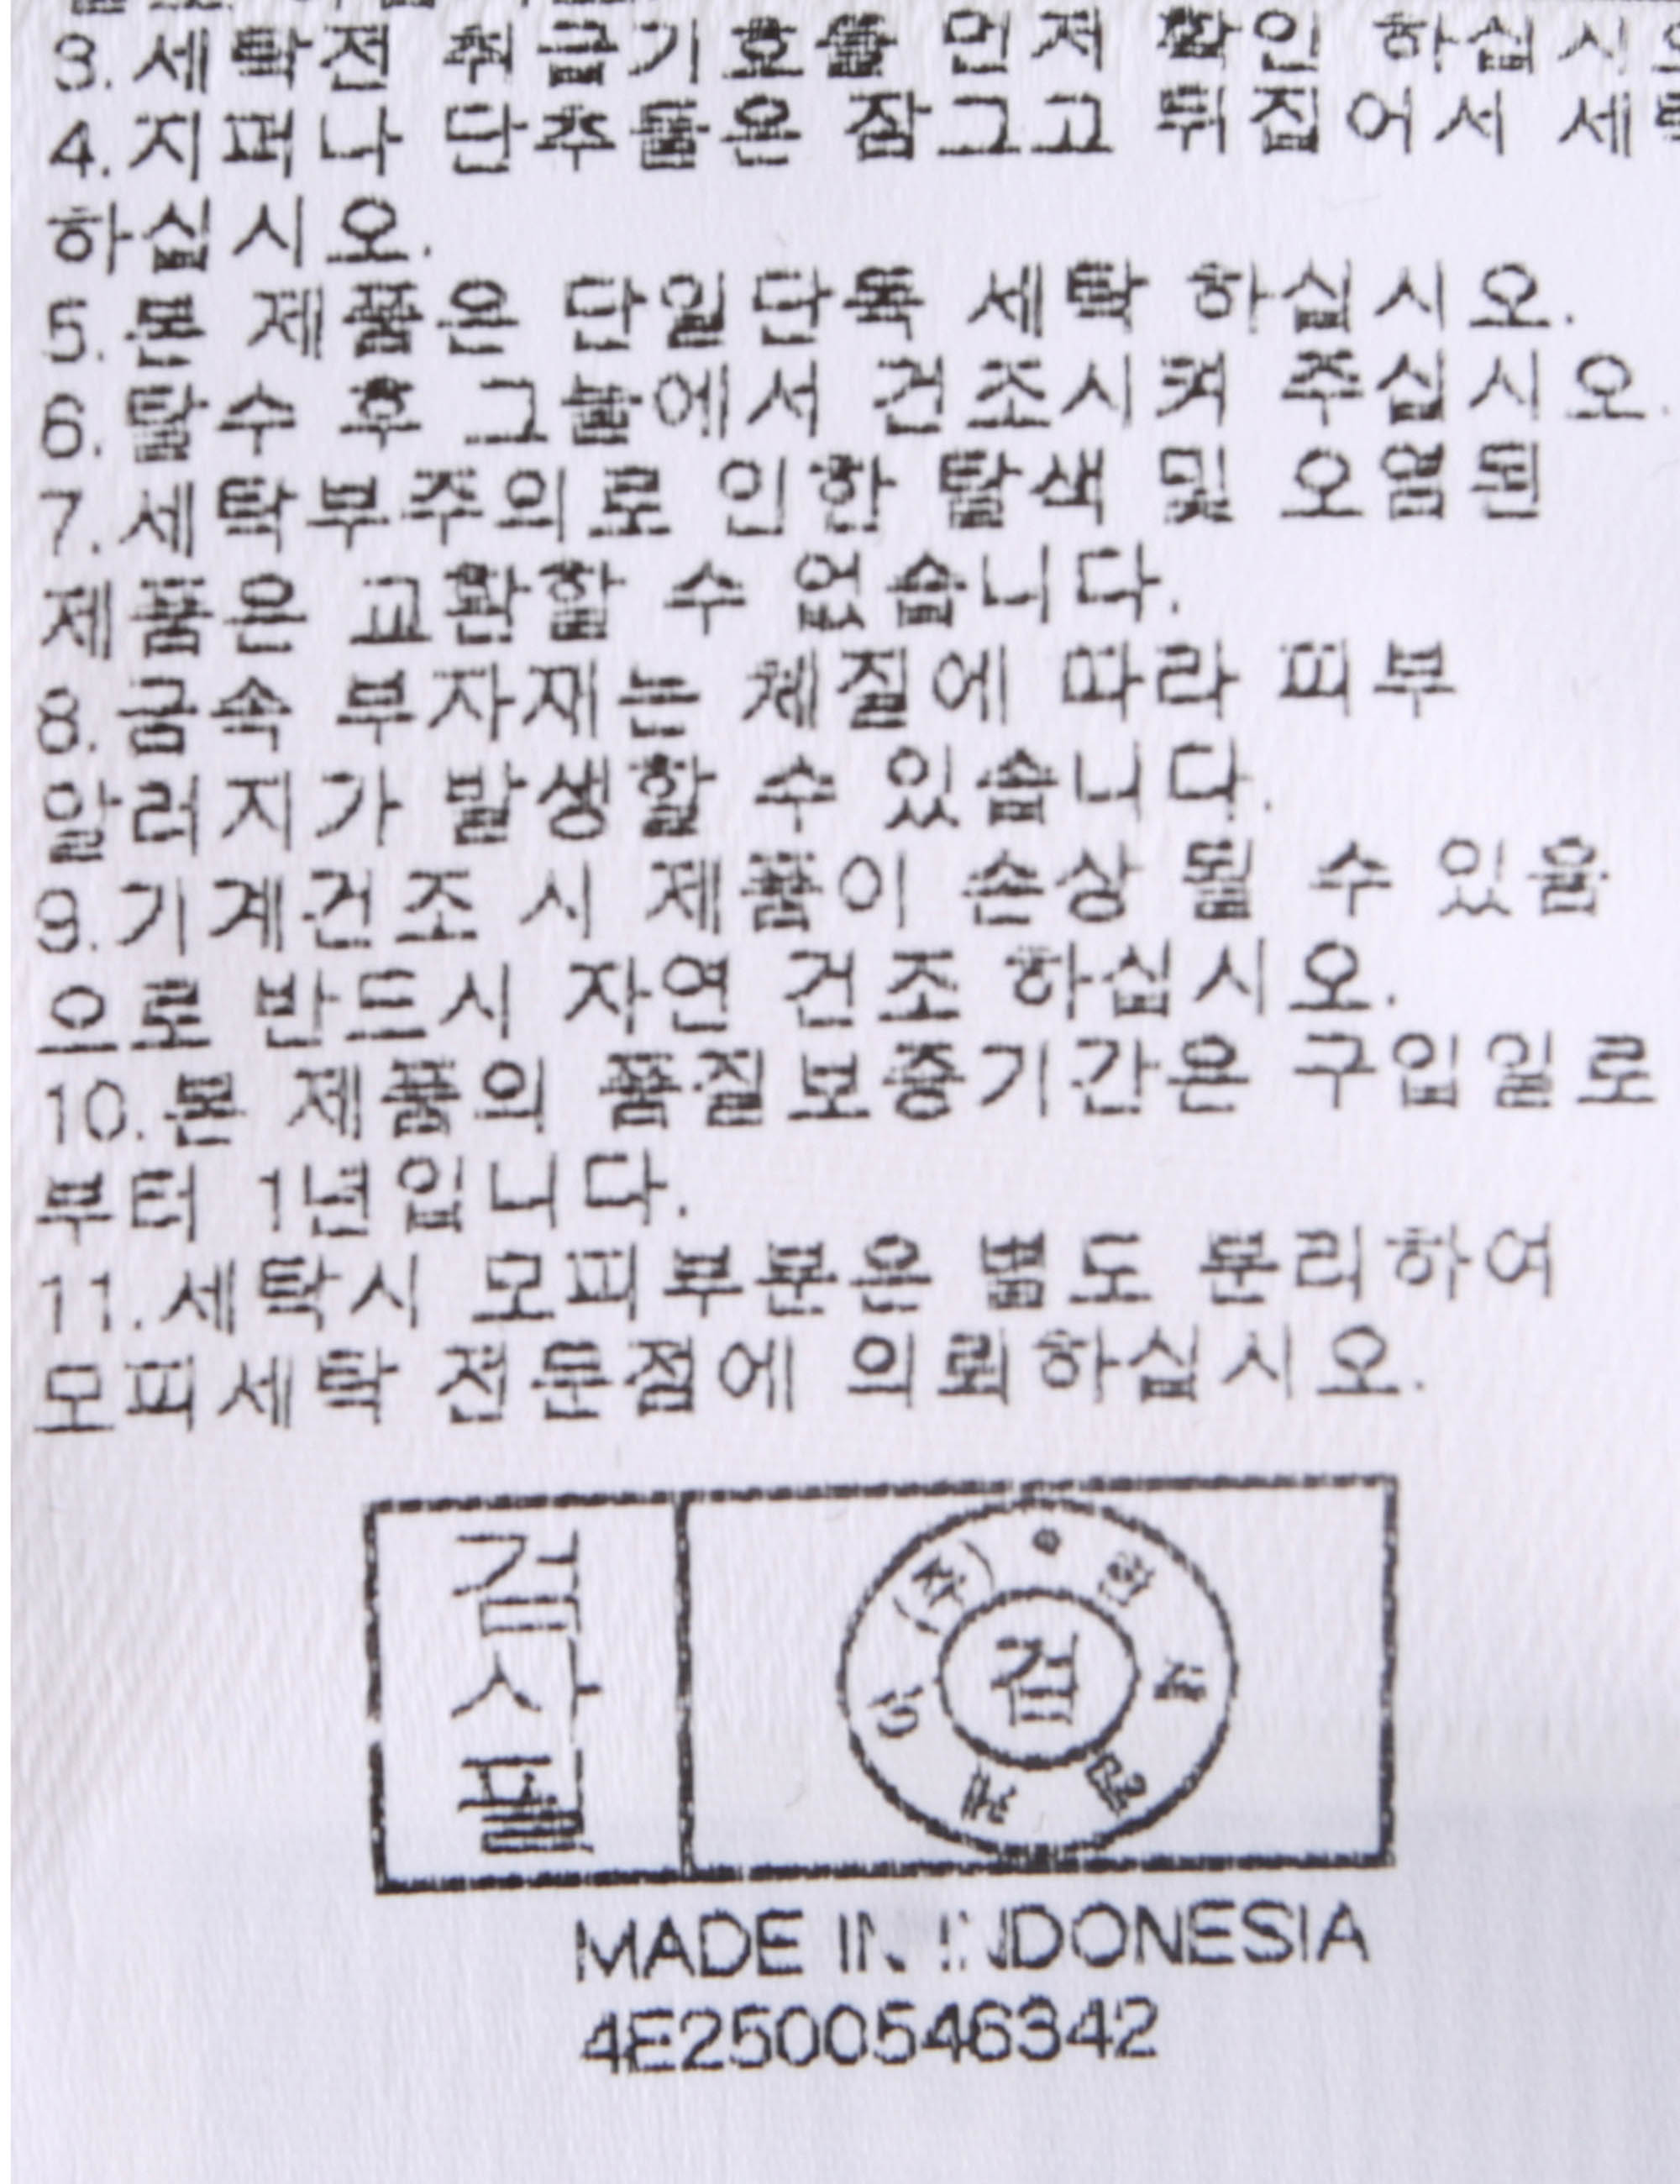 3.세탁전 취급기호를 먼저 확인 하십시오
4.지퍼나 단추들은 잠그고 뒤집어서 세탁
하십시오.
5.본 제품은 단일단독 세탁 하십시오.
6.탈수 후 그늘에서 건조시켜 주십시오.
7.세탁부주의로 인한 탈색 및 오염된
제품은 교환할 수 없습니다.
8.금속 부자재는 체질에 따라 피부
알러지가 발생할 수 있습니다.
9.기계건조 시 제품이 손상 될 수 있음
으로 반드시 자연 건조 하십시오.
10.본 제품의 품질보증기간은 구입일로
부터 1년입니다.
11.세탁시 모피부분은 별도 분리하여
모피세탁 전문점에 의뢰하십시오.
검사필
(주)
검
MADE IN INDONESIA
4E2500546342